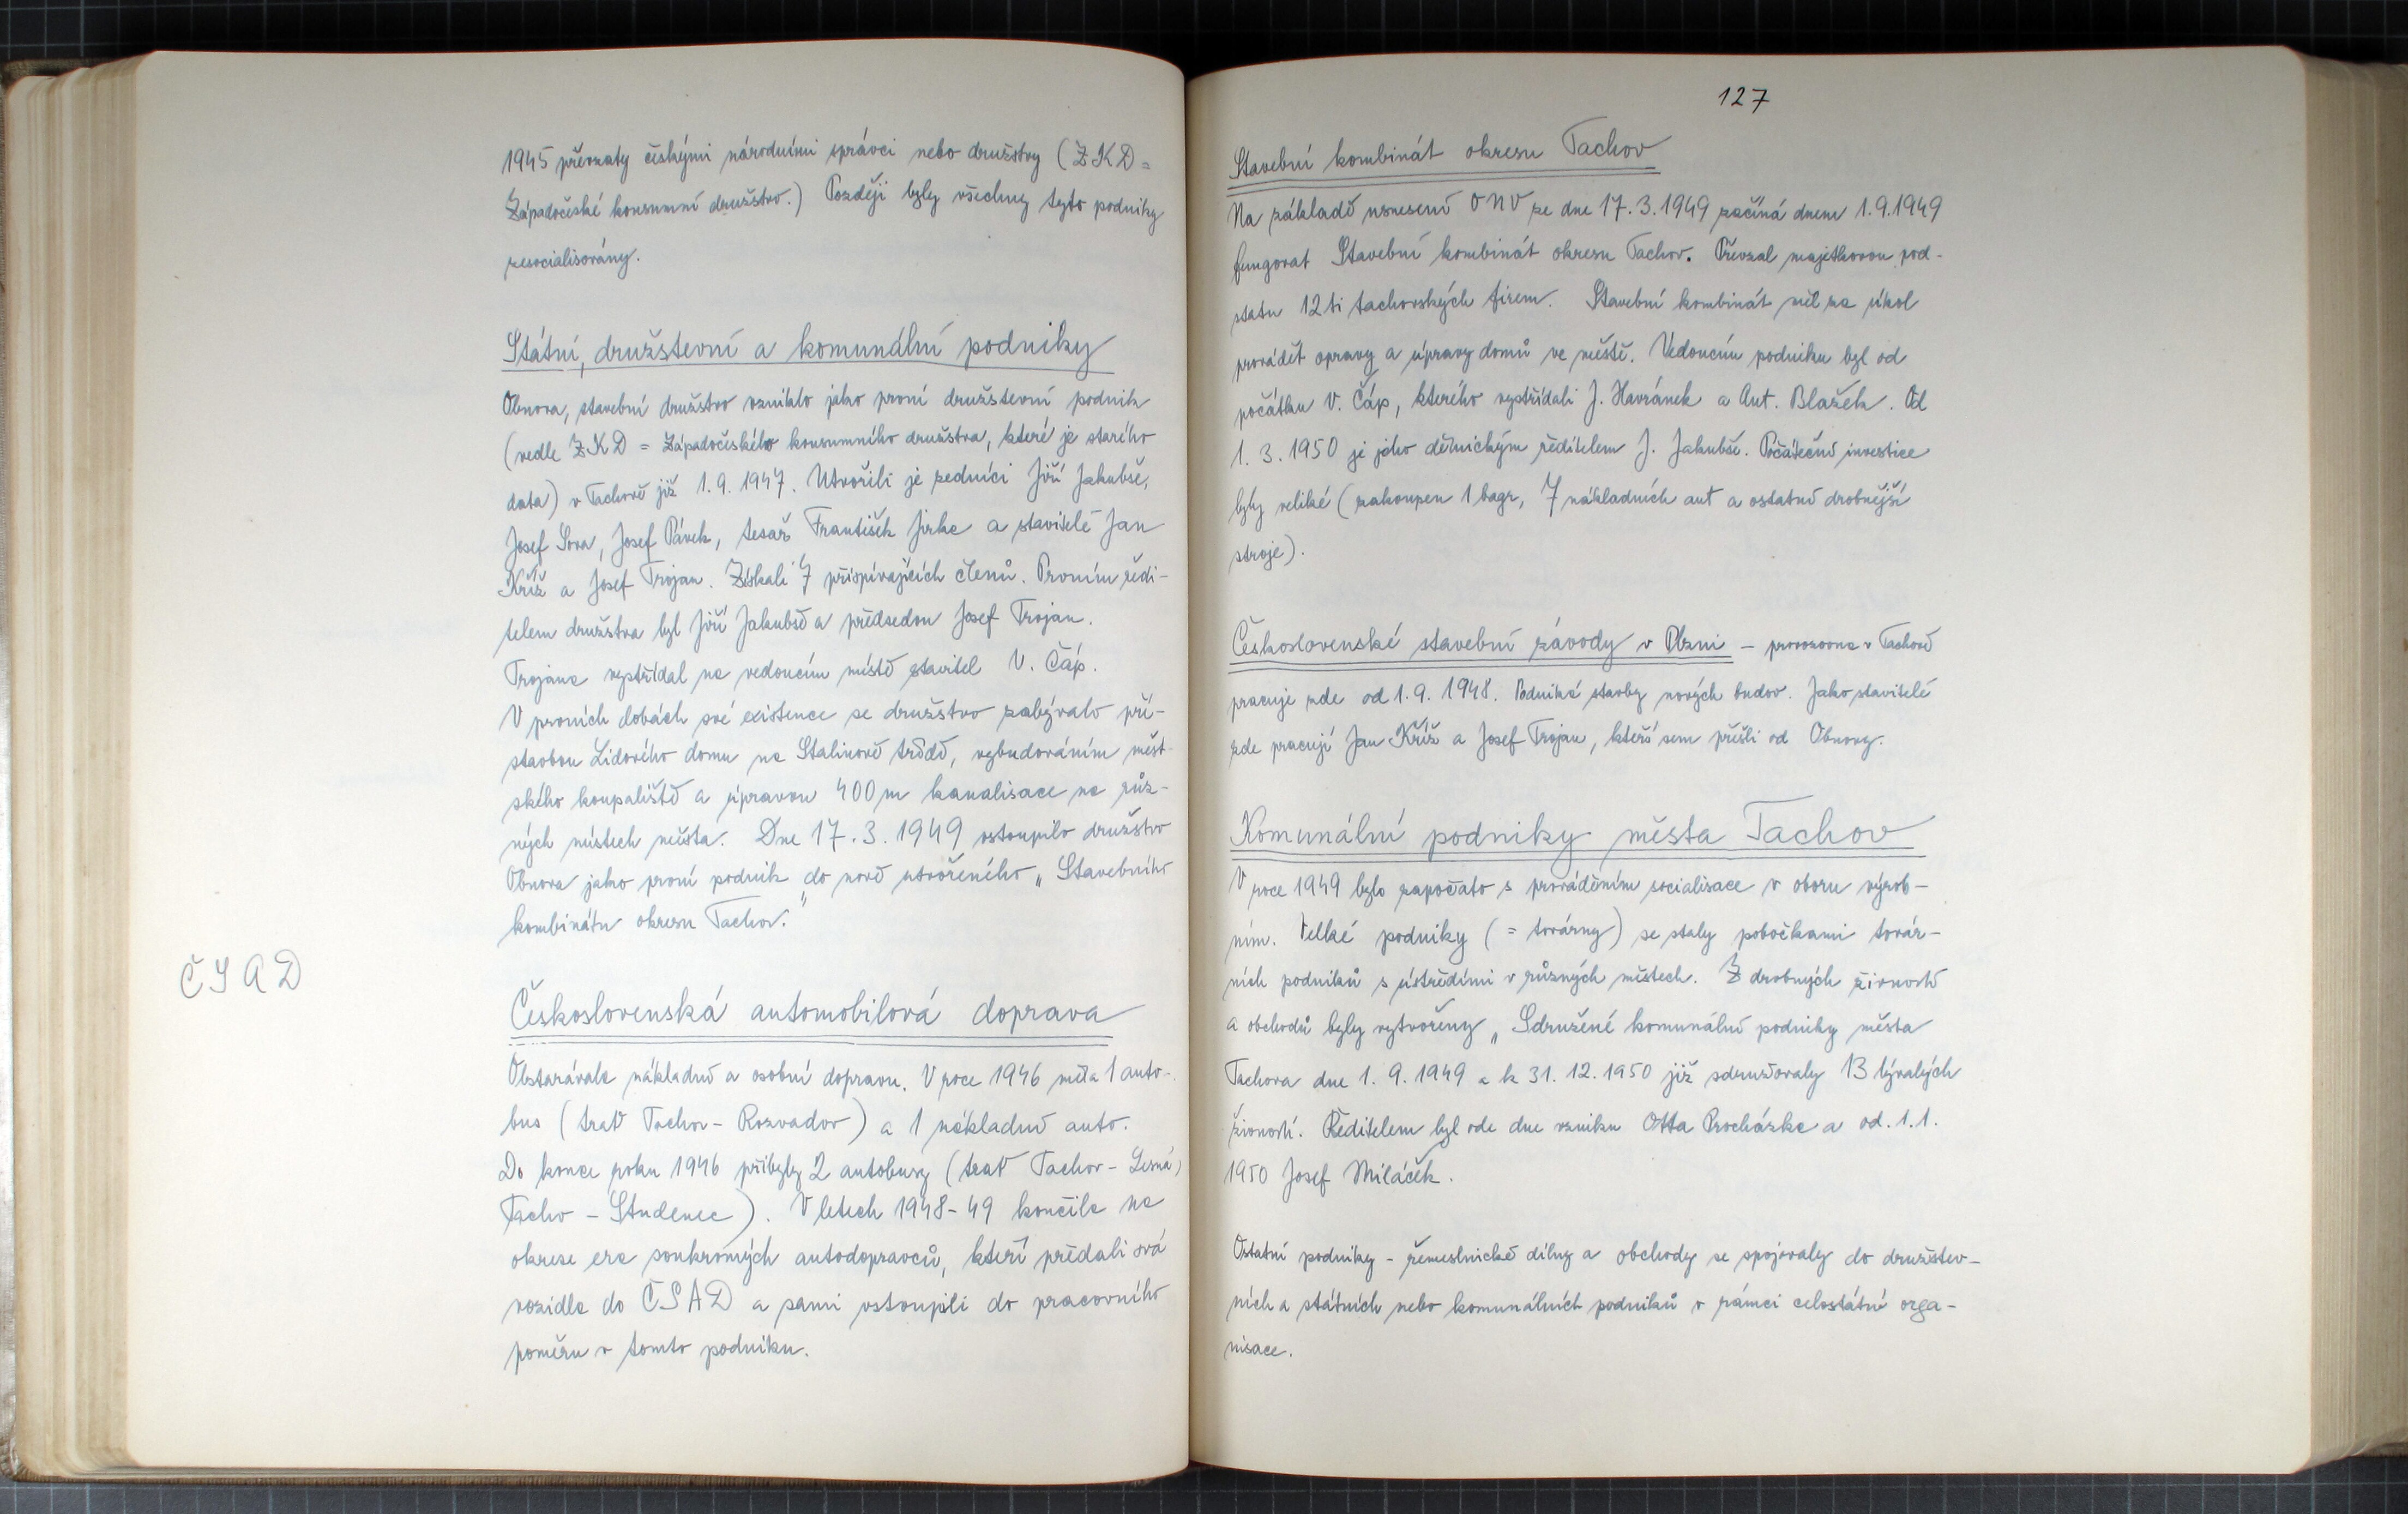 1945 převzaty českými národními správci nebo družstvy (ZKD =
Západočeské konsumní družstvo.) Později byly všechny tyto podniky
zesocialisovány.
Státní, družstevní a komunální podniky
Obnova, stavební družstvo vzniklo jako první družstevní podnik
(vedle ZKD = Západočeského konsumního družstva, které je starého
data) v Tachově již 1.9.1947. Utvořili je zedníci Jiří Jakubše,
Josef Sova, Josef Pávek, tesař František Jirka a stavitelé Jan
Kříž a Josef Trojan. Získali 7 přispívajících členů. Prvním ředi-
telem družstva byl Jiří Jakubše a předsedou Josef Trojan.
Trojana vystřídal na vedoucím místě stavitel V. Čáp.
V prvních dobách své existence se družstvo zabývalo pří-
stavbou Lidového domu na Stalinově třídě, vybudováním měst-
ského koupaliště a úpravou 400 m kanalisace na růz-
ných místech města. Dne 17.3.1949 vstoupilo družstvo
Obnova jako první podnik do nově utvořeného „Stavebního
kombinátu okresu Tachov."
ČSAD
Československá automobilová doprava
Obstarávala nákladní a osobní dopravu. V roce 1946 měla 1 auto-
bus (trať Tachov - Rozvadov) a 1 nákladní auto.
Do konce roku 1946 přibyly 2 autobusy (trať Tachov - Lesná,
Tacho - Studenec). V letech 1948-49 končila na
okrese era soukromých autodopravců, kteří předali svá
vozidla do ČSAD a sami vstoupili do pracovního
poměru v tomto podniku.
127
Stavební kombinát okresu Tachov
Na základě usnesení ONV ze dne 17.3.1949 začíná dnem 1.9.1949
fungovat Stavební kombinát okresu Tachov. Převzal majetkovou pod-
statu 12ti tachovských firem. Stavební kombinát měl za úkol
provádět opravy a úpravy domů ve městě. Vedoucím podniku byl od
počátku V. Čáp, kterého vystřídali J. Havránek a Ant. Blažek. Od
1.3.1950 je jeho dělnickým ředitelem J. Jakubše. Počáteční investice
byly veliké (zakoupen 1 bagr, 7 nákladních aut a ostatní drobnější
stroje).
Československé stavební závody v Plzni - provozovna v Tachově
pracuje zde od 1.9.1948. Podniká stavby nových budov. Jako stavitelé
zde pracují Jan Kříž a Josef Trojan, kteří sem přešli od Obnovy.
Komunální podniky města Tachov
V roce 1949 bylo započato s prováděním socialisace v oboru výrob-
ním. Velké podniky (= továrny) se staly pobočkami továr-
ních podniků s ústředími v různých městech. Z drobných živností
a obchodů byly vytvořeny „Sdružené komunální podniky města
Tachova dne 1.9.1949 a k 31.12.1950 již sdružovaly 13 bývalých
živností. Ředitelem byl ode dne vzniku Otta Procházka a od. 1.1.
1950 Josef Miláček.
Ostatní podniky - řemeslnické dílny a obchody se spojovaly do družstev-
ních a státních nebo komunálních podniků v rámci celostátní orga-
nisace.